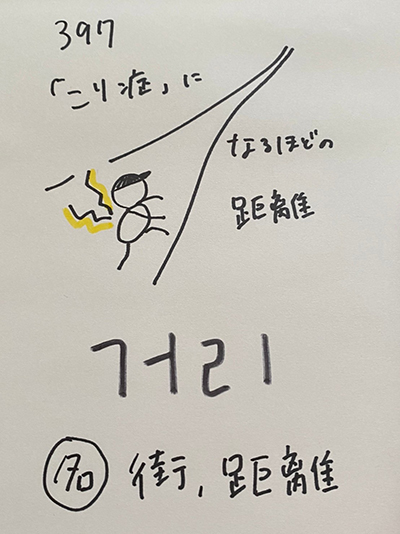 397
「こり症」に
なるほどの
距離
거리
名 街, 距離